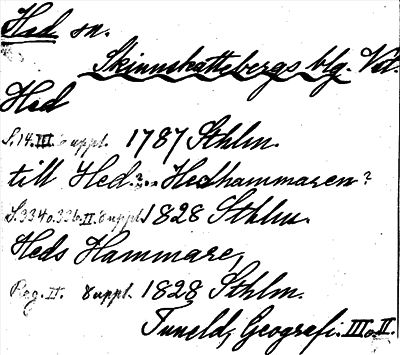 Hed sn.
Skinnskattebergs blg. Vstl.
Hed
S.14.III Suppl. 1787 Sthlm.
till Hed.?.. Hedhammaren?
S.334 o. 336. II. Suppl. 1828 Sthlm.
Heds Hammare,
Reg. II. Suppl. 1828 Sthlm.
Tuneld, Geografi. III o. II.